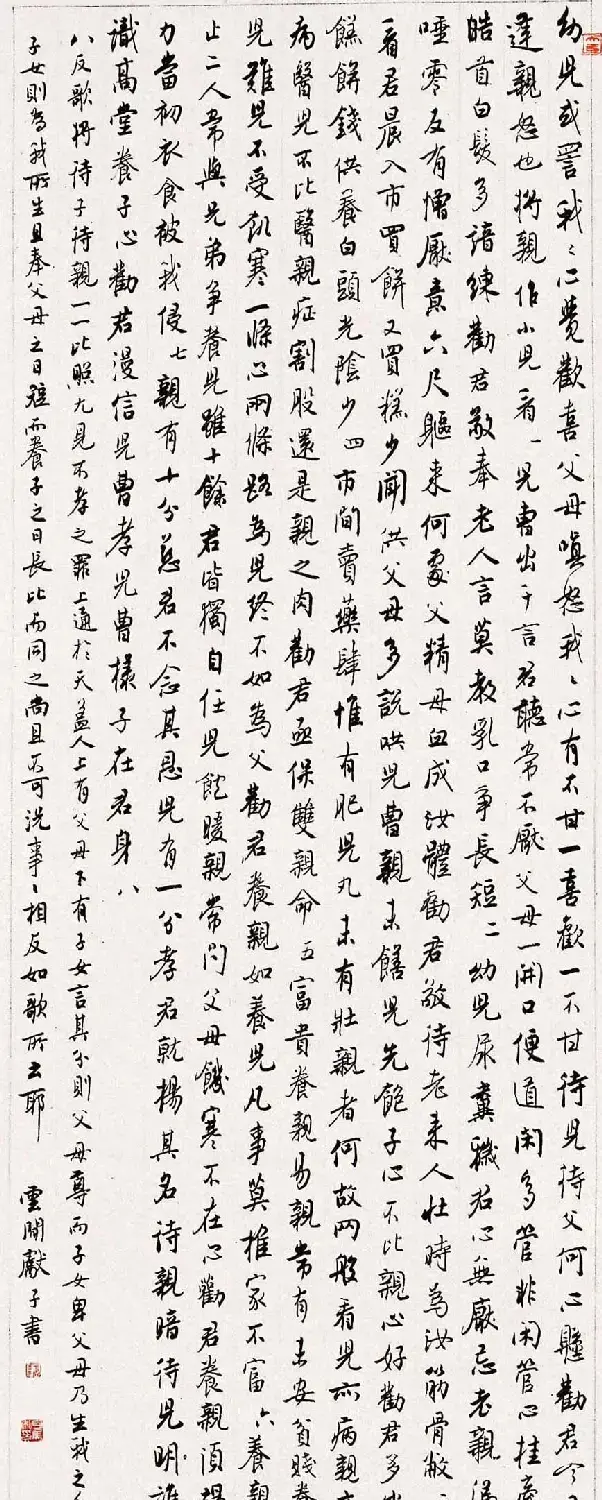 幼兒或詈我々心覺歡喜父母嗔怒我々心有不甘一喜歡一不甘待兒待父何心懸勸君今
逢親怒也將親作小兒看一兒曹出千言君聽常不厭父母一開口便道閑多管非閑管心挂牽
皓首白髮多諳練勸君敬奉老人言莫教乳口爭長短二幼兒尿糞穢君心無厭忌老親涕
唾零反有憎厭意六尺軀來何處父精母血成汝體勸君敬待老來人壯時為汝筋骨敝
看君晨入市買餅又買糕少聞供父母多說供兒曹親未饍兒先飽子心不比親心好勸君多
糕餅錢供養白頭光陰少四市間賣藥肆惟有肥兒丸未有壯親者何故兩般看兒亦病親亦
病醫兒不比醫親症割股還是親之肉勸君亟保雙親命五富貴養親易親常有未安貧賤養
兒難兒不受飢寒一條心兩條路為兒終不如為父勸君養親如養兒凡事莫推家不富六養親
止二人常與兄弟爭養兒雖十餘君皆獨自任兒飽暖親常問父母饑寒不在心勸君養親須竭
力當初衣食被我侵七親有十分慈君不念其恩兒有一分孝君就揚其名待親暗待兒明誰
識高堂養子心勸君漫信兒曹孝兒曹樣子在君身八
八反歌將待子待親一一比照尤見不孝之罪上通於天蓋人上有父母下有子女言其分則父母尊而子女卑父母乃生我之人
子女則為我所生且奉父母之日短而養子之日長比而同之尚且不可況事々相反如歌所云耶
雲間獻子書